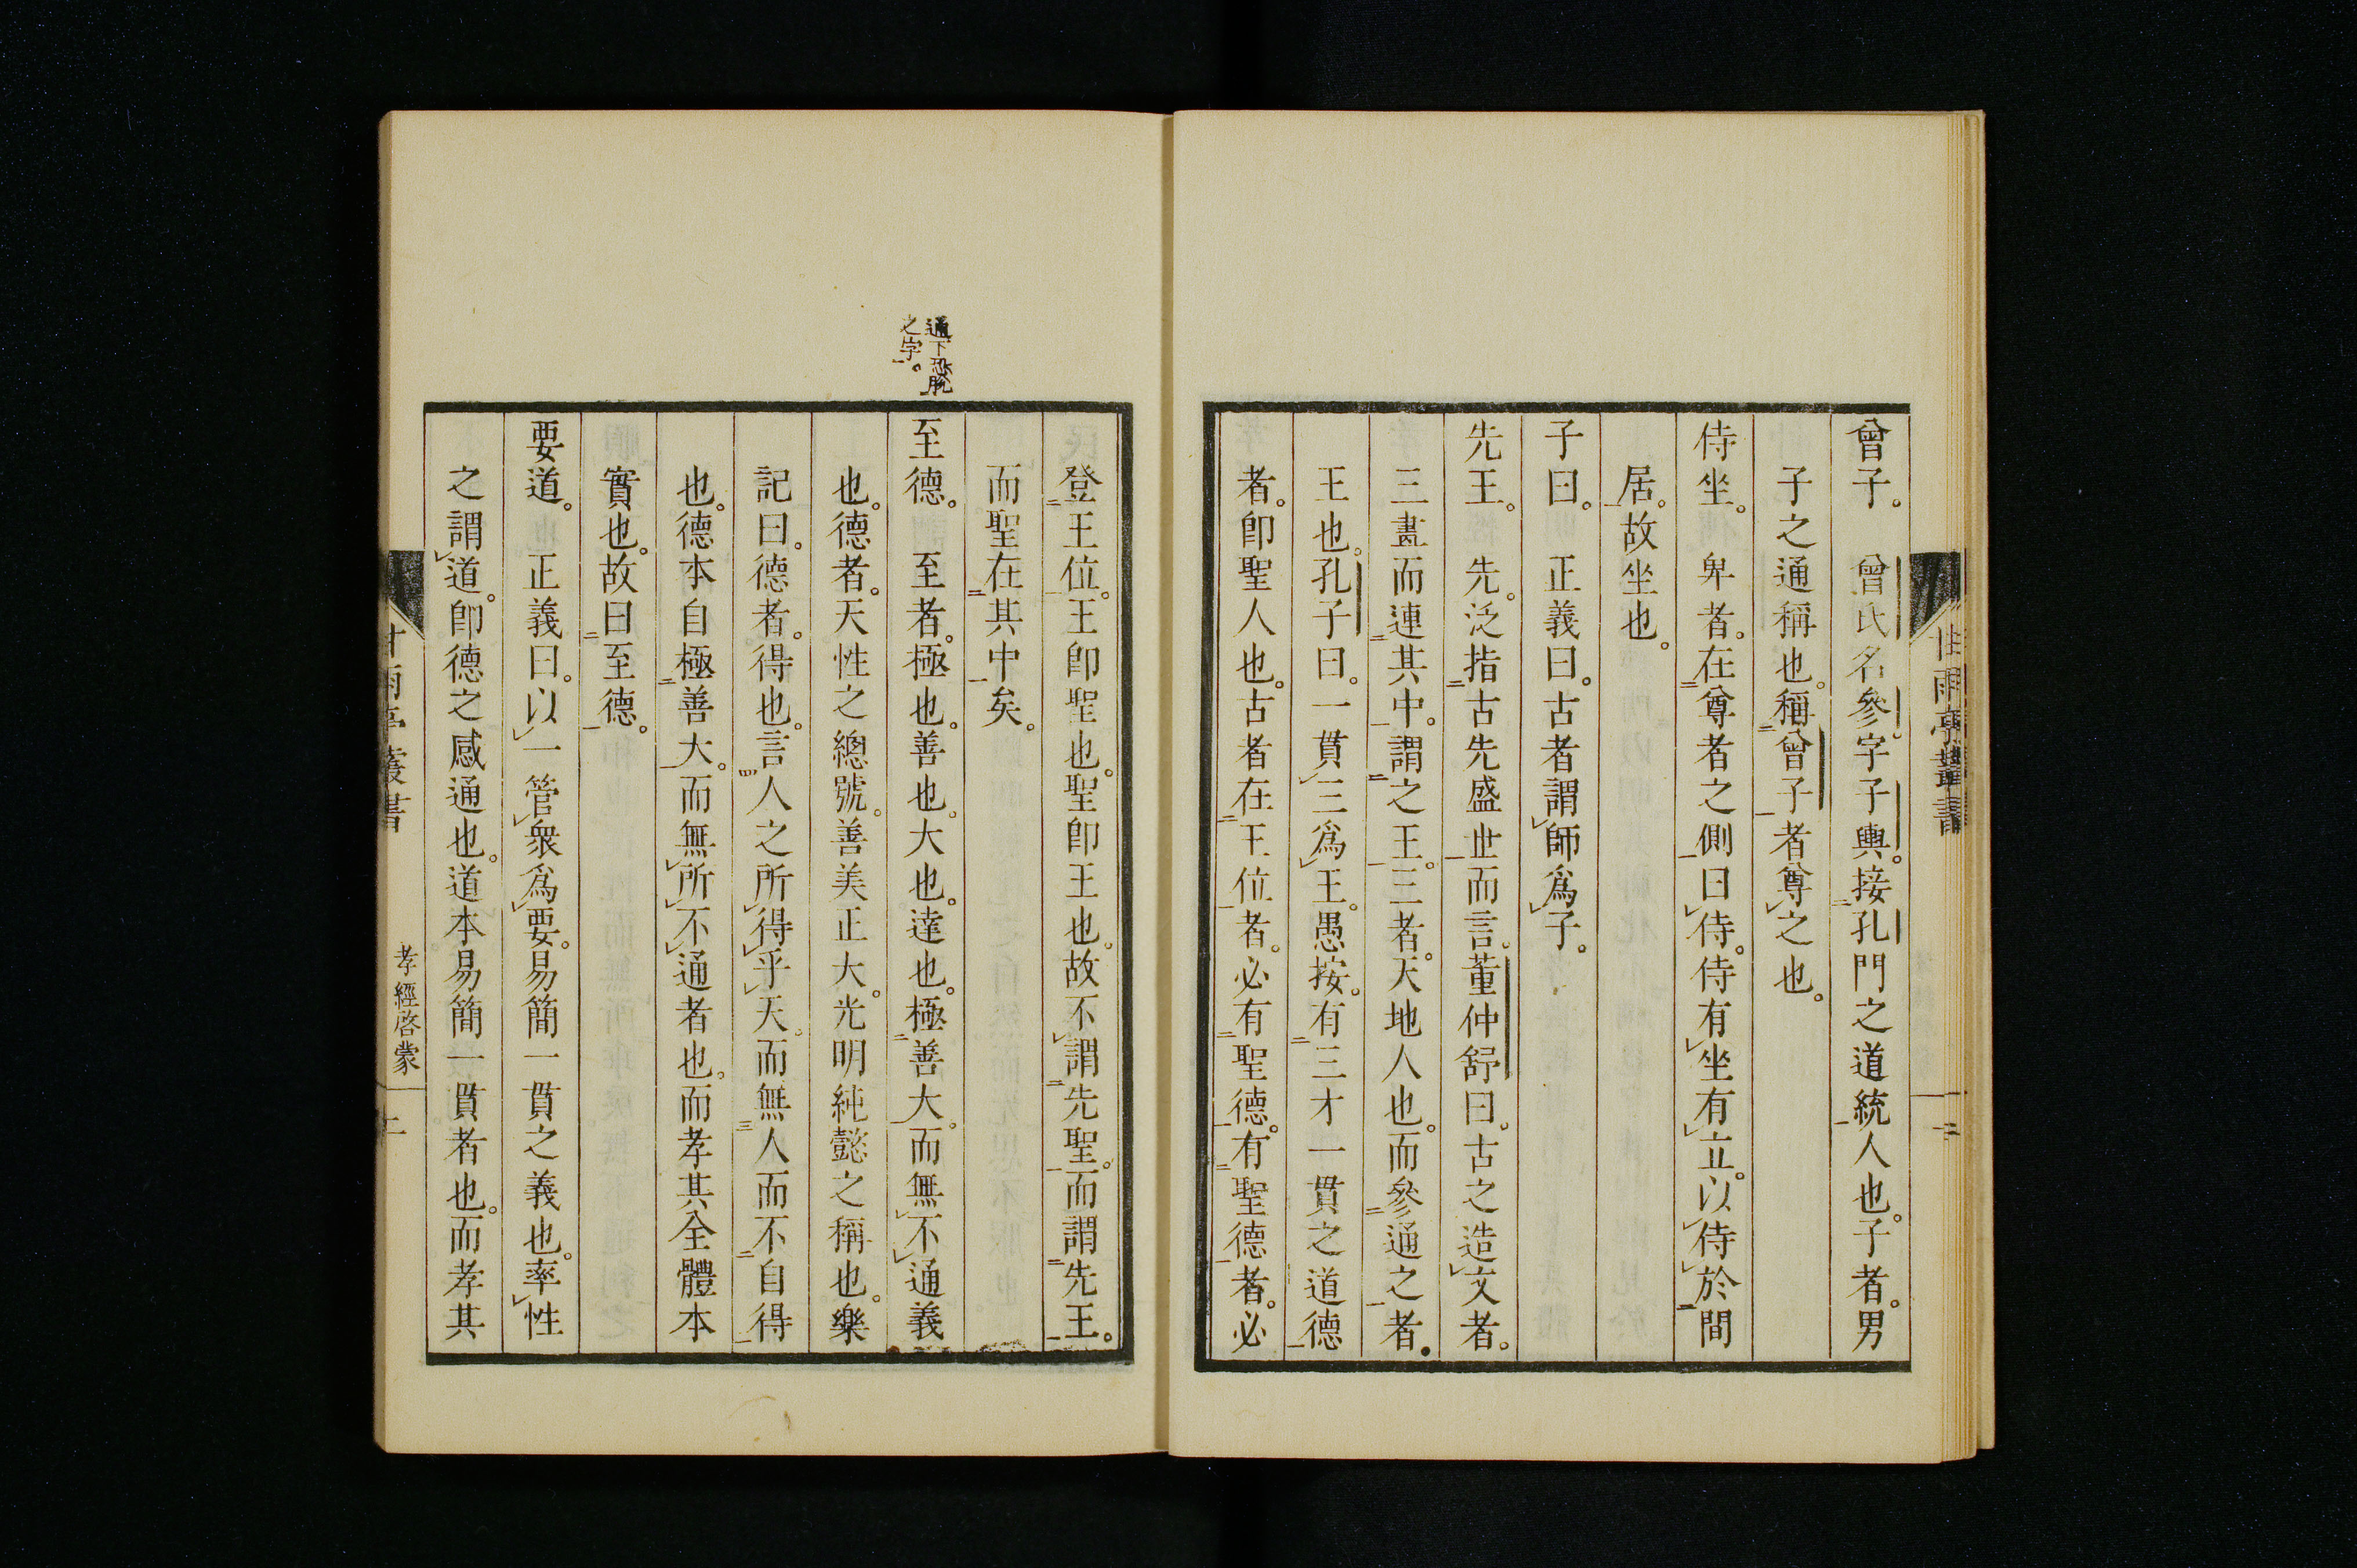 曾子。　曾氏名參字子輿。接孔門之道統人也。子者。男
子之通稱也。稱曾子者尊之也。
侍坐。　卑者。在尊者之側曰侍。侍有坐有立。以侍於間
居。故坐也。
子曰。　正義曰。古者謂師爲子。
先王。　先。泛指古先盛世而言。董仲舒曰。古之造文者。
三畫而連其中。謂之王。三者。天地人也。而參通之者。
王也。孔子曰。一貫三爲王。愚按。有三才一貫之道德
者。卽聖人也。古者在王位者。必有聖德。有聖德者。必
登王位。王卽聖也。聖卽王也。故不謂先聖。而謂先王。
而聖在其中矣。
通下恐脫
之字。
至德。　至者。極也。善也。大也。達也。極善大。而無不通義
也。德者。天性之總號。善美正大。光明純懿之稱也。樂
記曰。德者。得也。言人之所得乎天。而無人而不自得
也。德本自極善大。而無所不通者也。而孝其全體本
實也。故曰至德。
要道。　正義曰。以一管衆爲要。易簡一貫之義也。率性
之謂道。卽德之感通也。道本易簡一貫者也。而孝其
孝經啓蒙